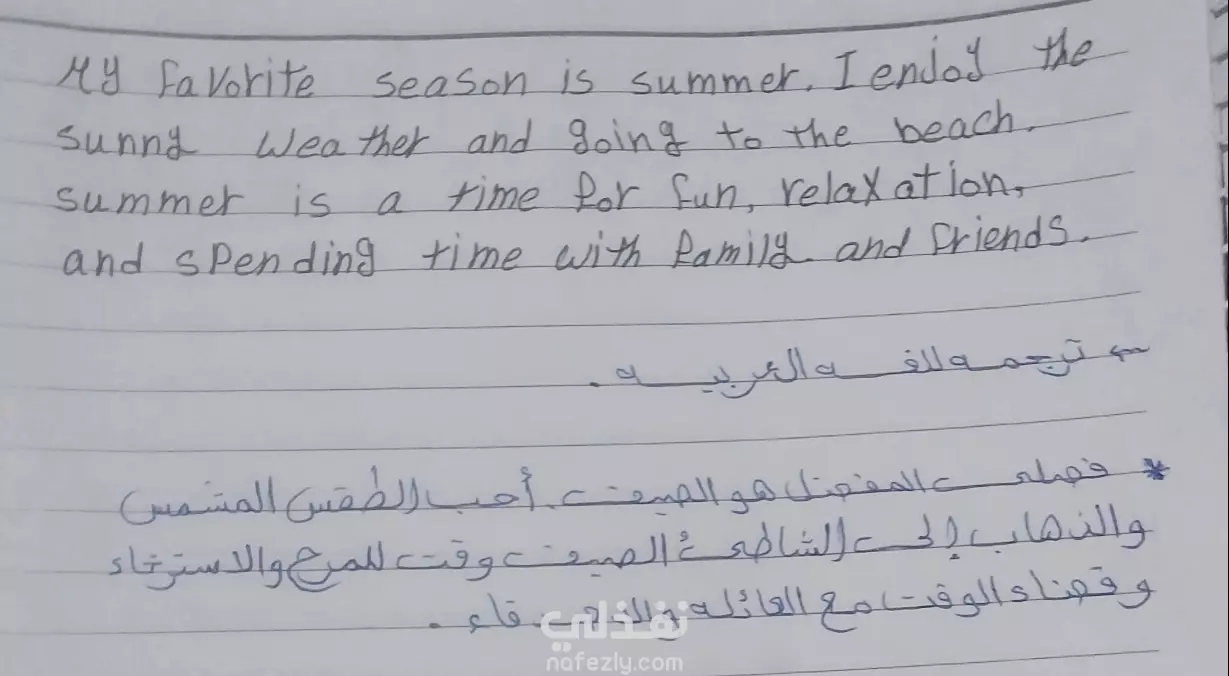 My favorite season is summer. I enjoy the
sunny weather and going to the beach.
summer is a time for fun, relaxation,
and spending time with family and friends.
ترجمه للغه العربيه.
* فصلي المفضل هو الصيف. أحب الطقس المشمس
والذهاب إلى الشاطئ الصيف وقت للمرح والاسترخاء
وقضاء الوقت مع العائله
نفذلي
nafezly.com